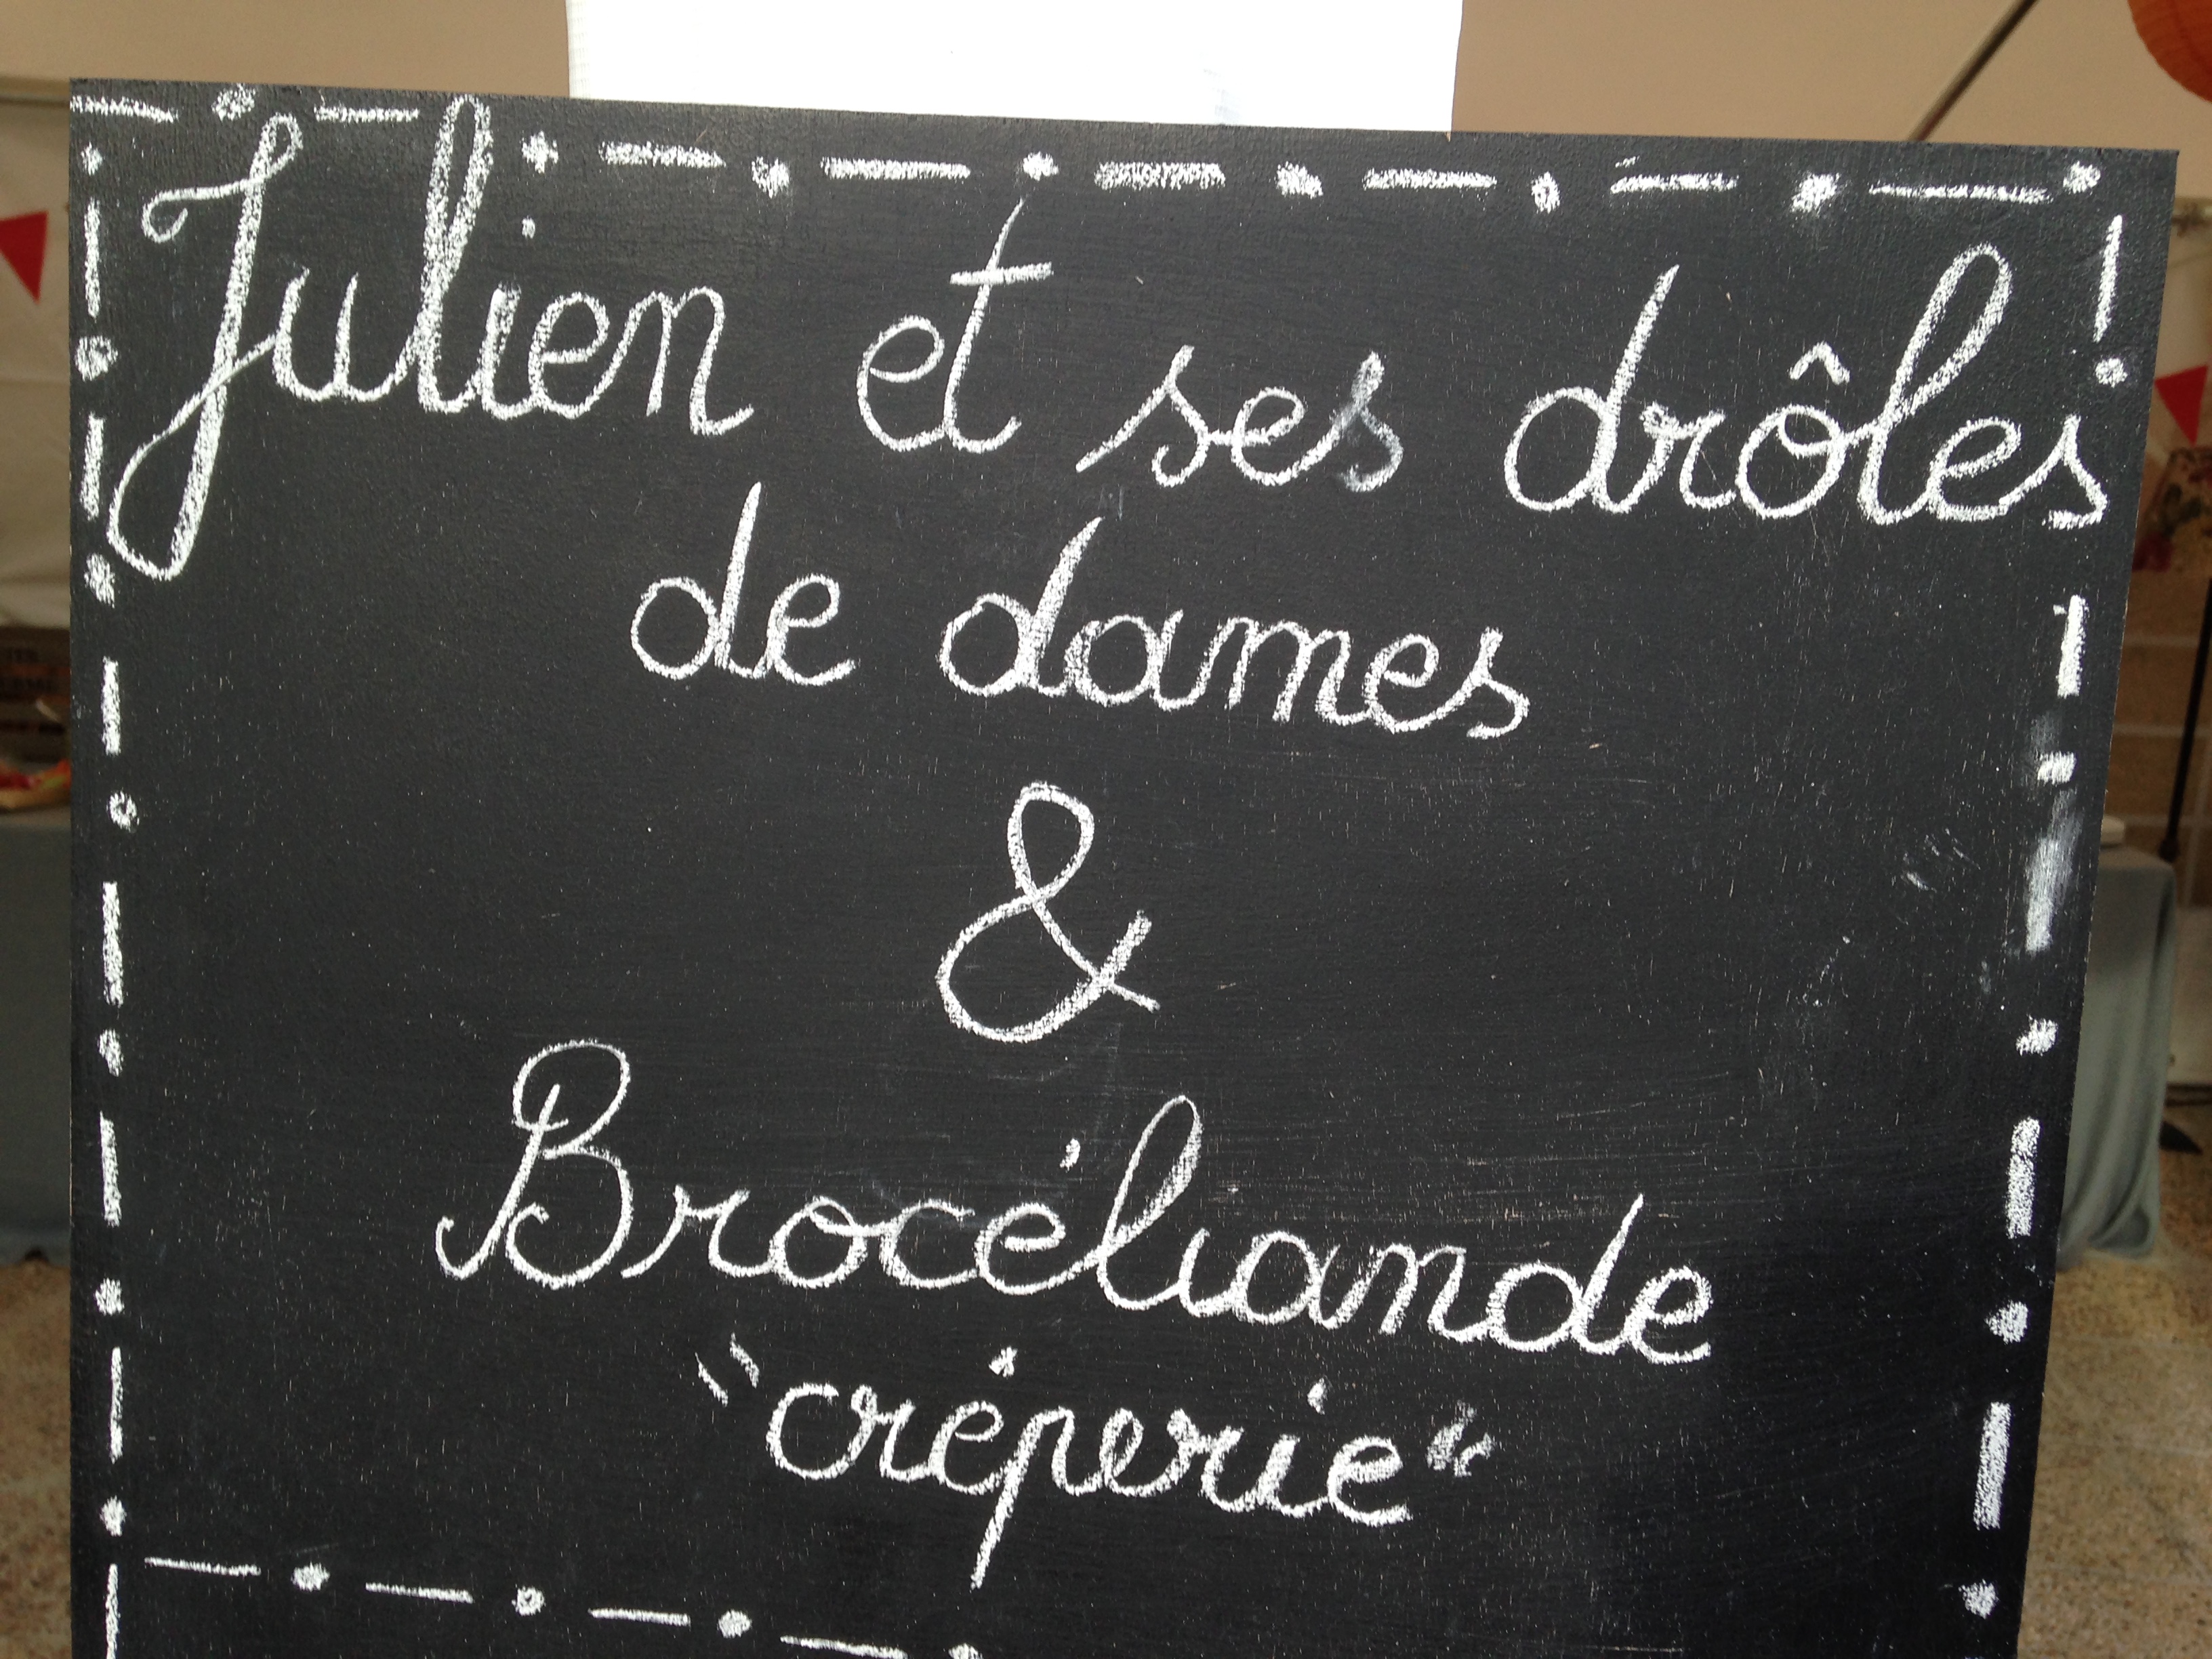 Julien et ses drôles
de dames
&
Brocéliande
"crêperie"